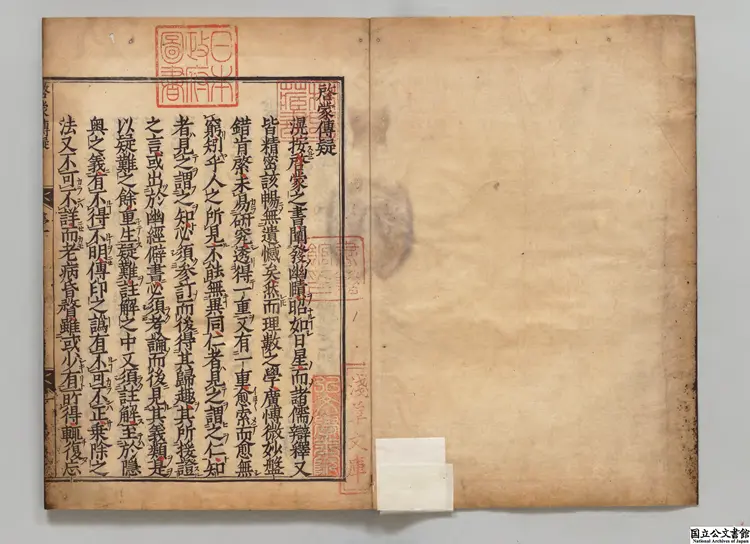 日本
政府
圖書
啓蒙傳疑
滉按啓蒙之書闡發幽賾昭如日星而諸儒辯釋又
皆精密該暢無遺憾矣然而理數之學廣博微妙盤
錯肯綮未易研究透得一重又有一重愈索而愈無
窮矧乎人之所見不能無異同仁者見之謂之仁知
者見之謂之知必須參訂而後得其歸趣其所援證
之言或出於幽經僻書必須考論而後見其義類是
以疑難之餘重生疑難註解之中又須註解至於隱
奧之義有不得不明傳印之譌有不可不正乗除之
法又不可不詳而老病昏瞀雖或少有所得輒復忘
淺草文庫
国立公文書館
National Archives of Japan